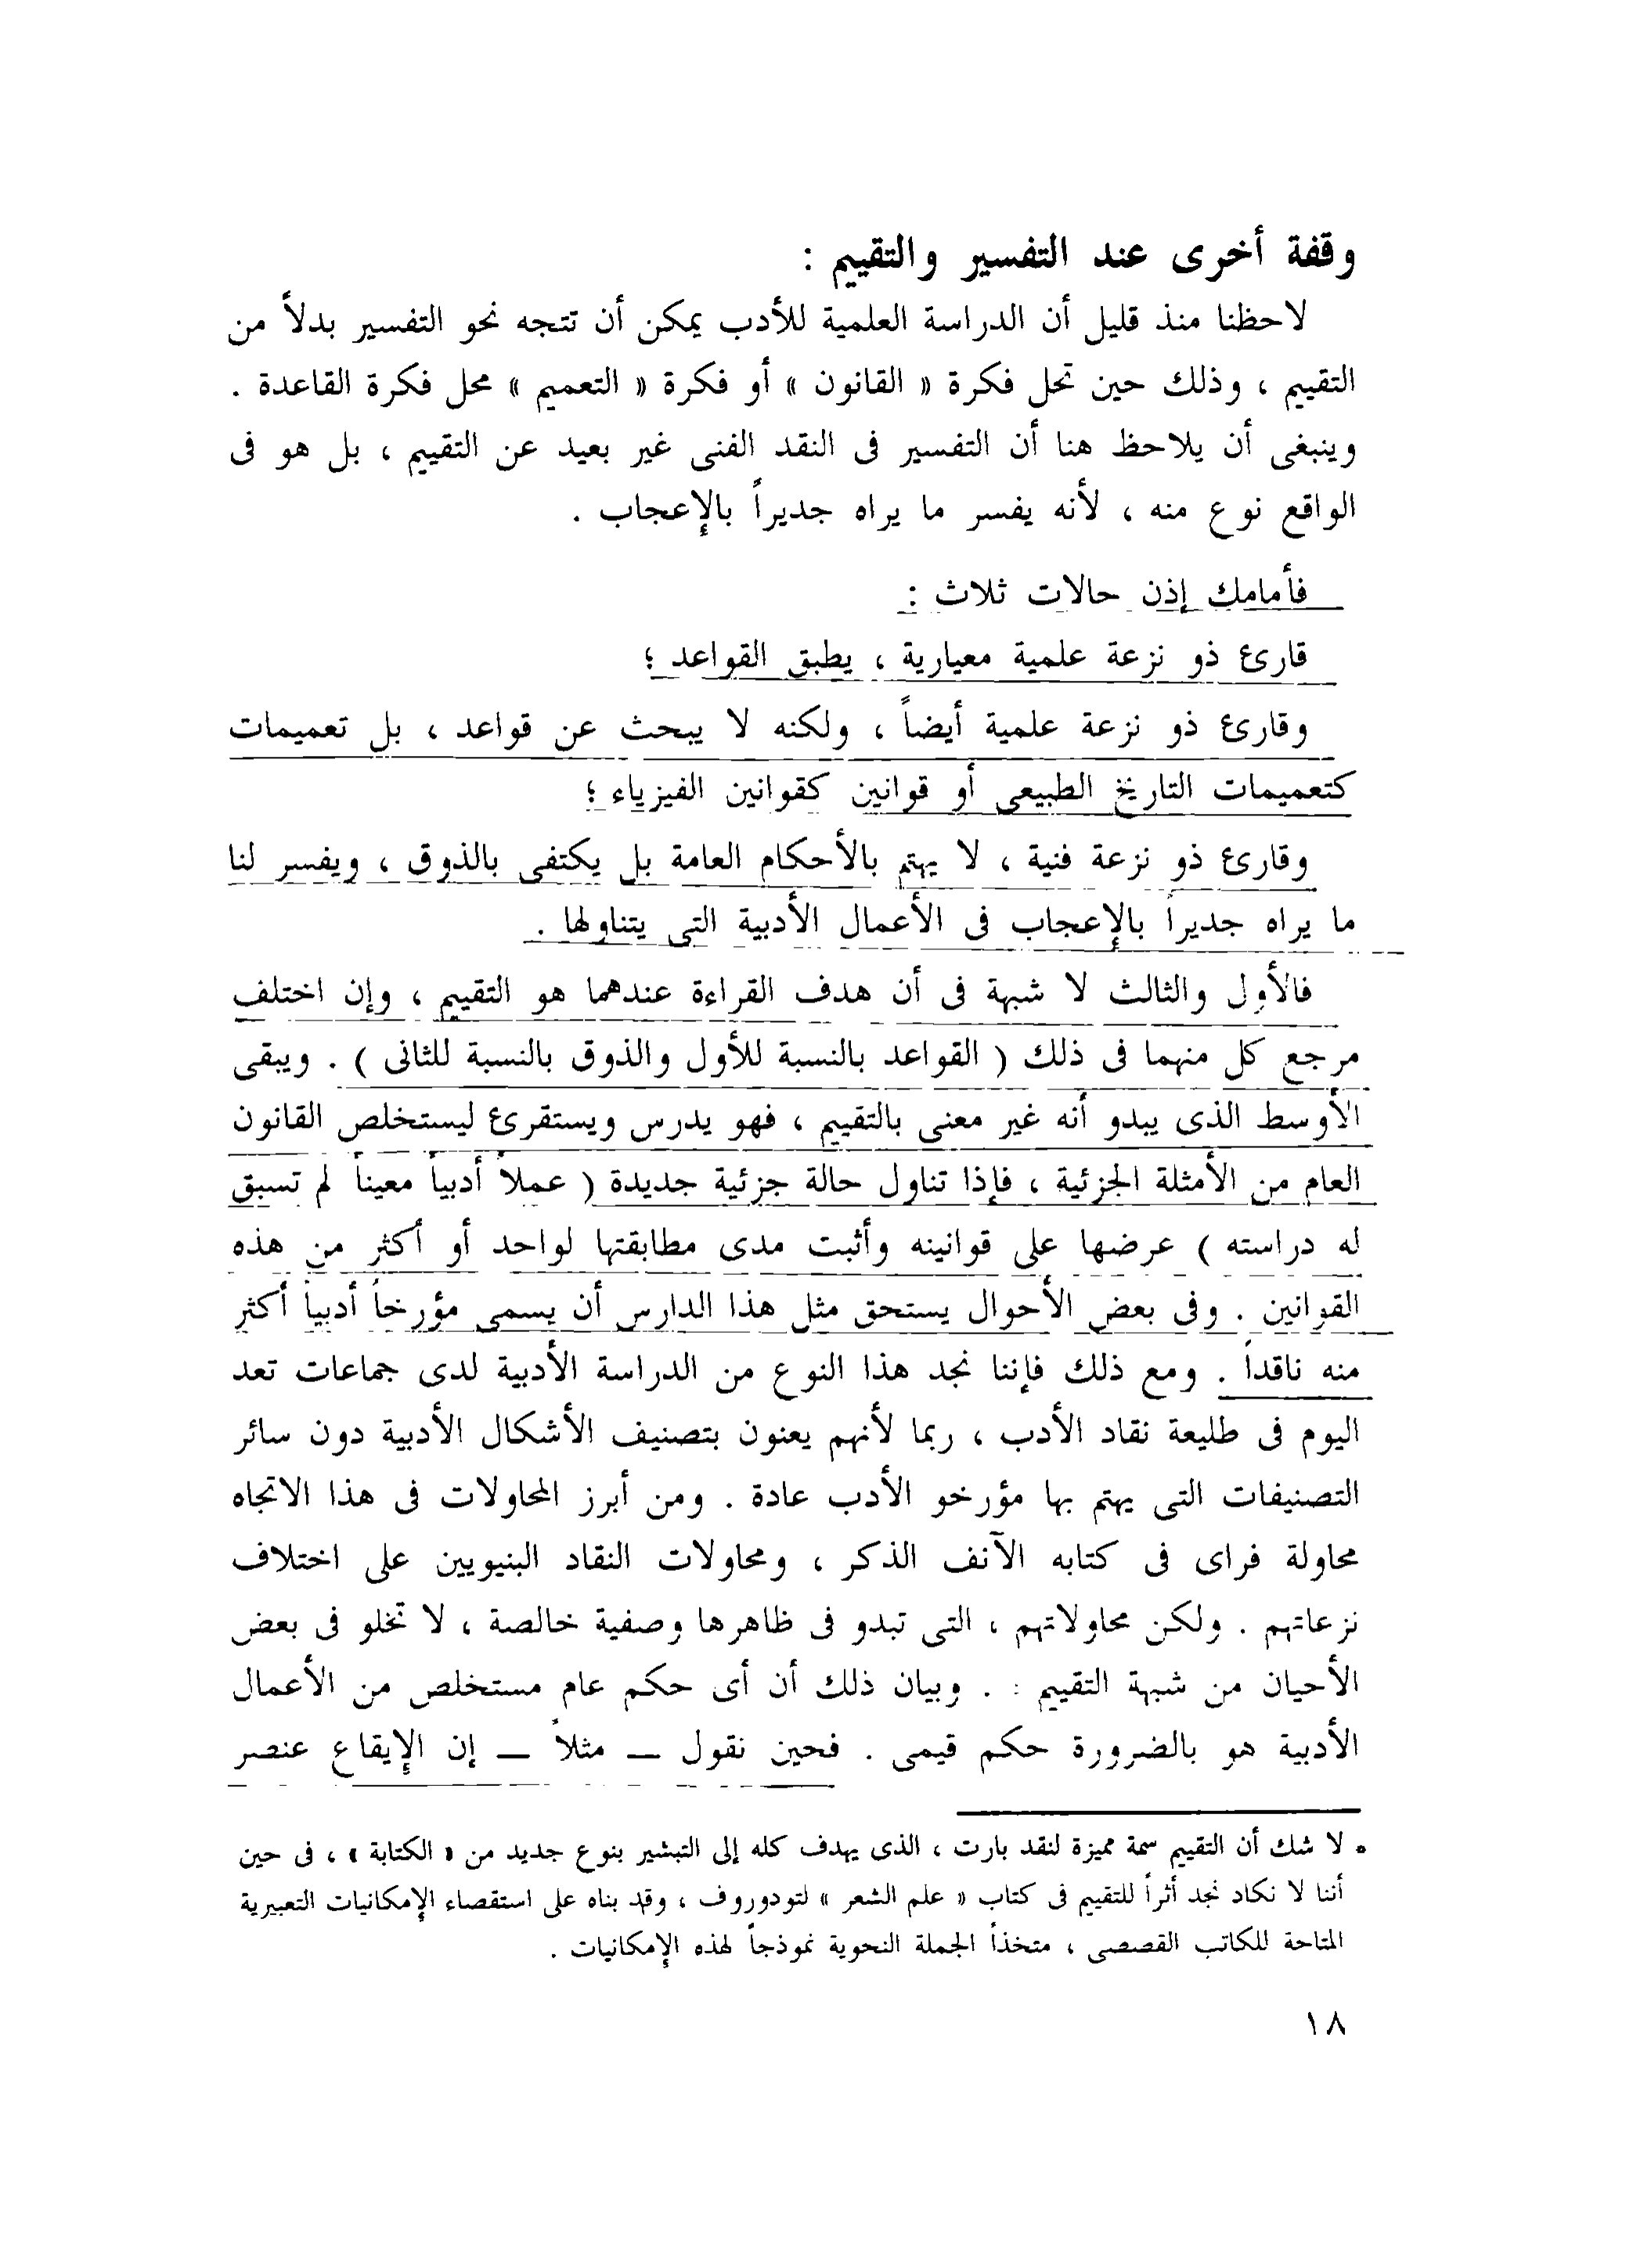 وقفة أخرى عند التفسير والتقييم :
لاحظنا منذ قليل أن الدراسة العلمية للأدب يمكن أن تتجه نحو التفسير بدلاً من
التقييم ، وذلك حين تحل فكرة « القانون » أو فكرة « التعميم » محل فكرة القاعدة .
وينبغى أن يلاحظ هنا أن التفسير فى النقد الفنى غير بعيد عن التقييم ، بل هو فى
الواقع نوع منه ، لأنه يفسر ما يراه جديراً بالإعجاب .
فأمامك إذن حالات ثلاث :
قارئ ذو نزعة علمية معيارية ، يطبق القواعد ؛
وقارئ ذو نزعة علمية أيضاً ، ولكنه لا يبحث عن قواعد ، بل تعميمات
كتعميمات التاريخ الطبيعى أو قوانين كقوانين الفيزياء ؛
وقارئ ذو نزعة فنية ، لا يهتم بالأحكام العامة بل يكتفى بالذوق ، ويفسر لنا
ما يراه جديراً بالإعجاب فى الأعمال الأدبية التى يتناولها .
فالأول والثالث لا شبهة فى أن هدف القراءة عندهما هو التقييم ، وإن اختلف
مرجع كل منهما فى ذلك ( القواعد بالنسبة للأول والذوق بالنسبة للثانى ) . ويبقى
الأوسط الذى يبدو أنه غير معنى بالتقييم ، فهو يدرس ويستقرئ ليستخلص القانون
العام من الأمثلة الجزئية ، فإذا تناول حالة جزئية جديدة ( عملاً أدبياً معيناً لم تسبق
له دراسته ) عرضها على قوانينه وأثبت مدى مطابقتها لواحد أو أكثر من هذه
القوانين . وفى بعض الأحوال يستحق مثل هذا الدارس أن يسمى مؤرخاً أدبياً أكثر
منه ناقداً . ومع ذلك فإننا نجد هذا النوع من الدراسة الأدبية لدى جماعات تعد
اليوم فى طليعة نقاد الأدب ، ربما لأنهم يعنون بتصنيف الأشكال الأدبية دون سائر
التصنيفات التى يهتم بها مؤرخو الأدب عادة . ومن أبرز المحاولات فى هذا الاتجاه
محاولة فراى فى كتابه الآنف الذكر ، ومحاولات النقاد البنيويين على اختلاف
نزعاتهم . ولكن محاولاتهم ، التى تبدو فى ظاهرها وصفية خالصة ، لا تخلو فى بعض
الأحيان من شبهة التقييم : . وبيان ذلك أن أى حكم عام مستخلص من الأعمال
الأدبية هو بالضرورة حكم قيمى . فحين نقول — مثلاً — إن الإيقاع عنصر
٥ لا شك أن التقييم سمة مميزة لنقد بارت ، الذى يهدف كله إلى التبشير بنوع جديد من « الكتابة » ، فى حين
أننا لا نكاد نجد أثراً للتقييم فى كتاب « علم الشعر » لتودوروف ، وقد بناه على استقصاء الإمكانيات التعبيرية
المتاحة للكاتب القصصى ، متخذاً الجملة النحوية نموذجاً لهذه الإمكانيات .
١٨